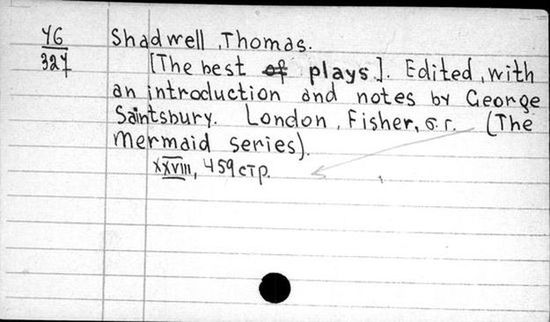 46 Shadwell, Thomas.
327 [The best of plays.]. Edited, with
an introduction and notes by George
Saintsbury. London, Fisher, б.г. (The
Mermaid series).
XXVIII, 459 стр.